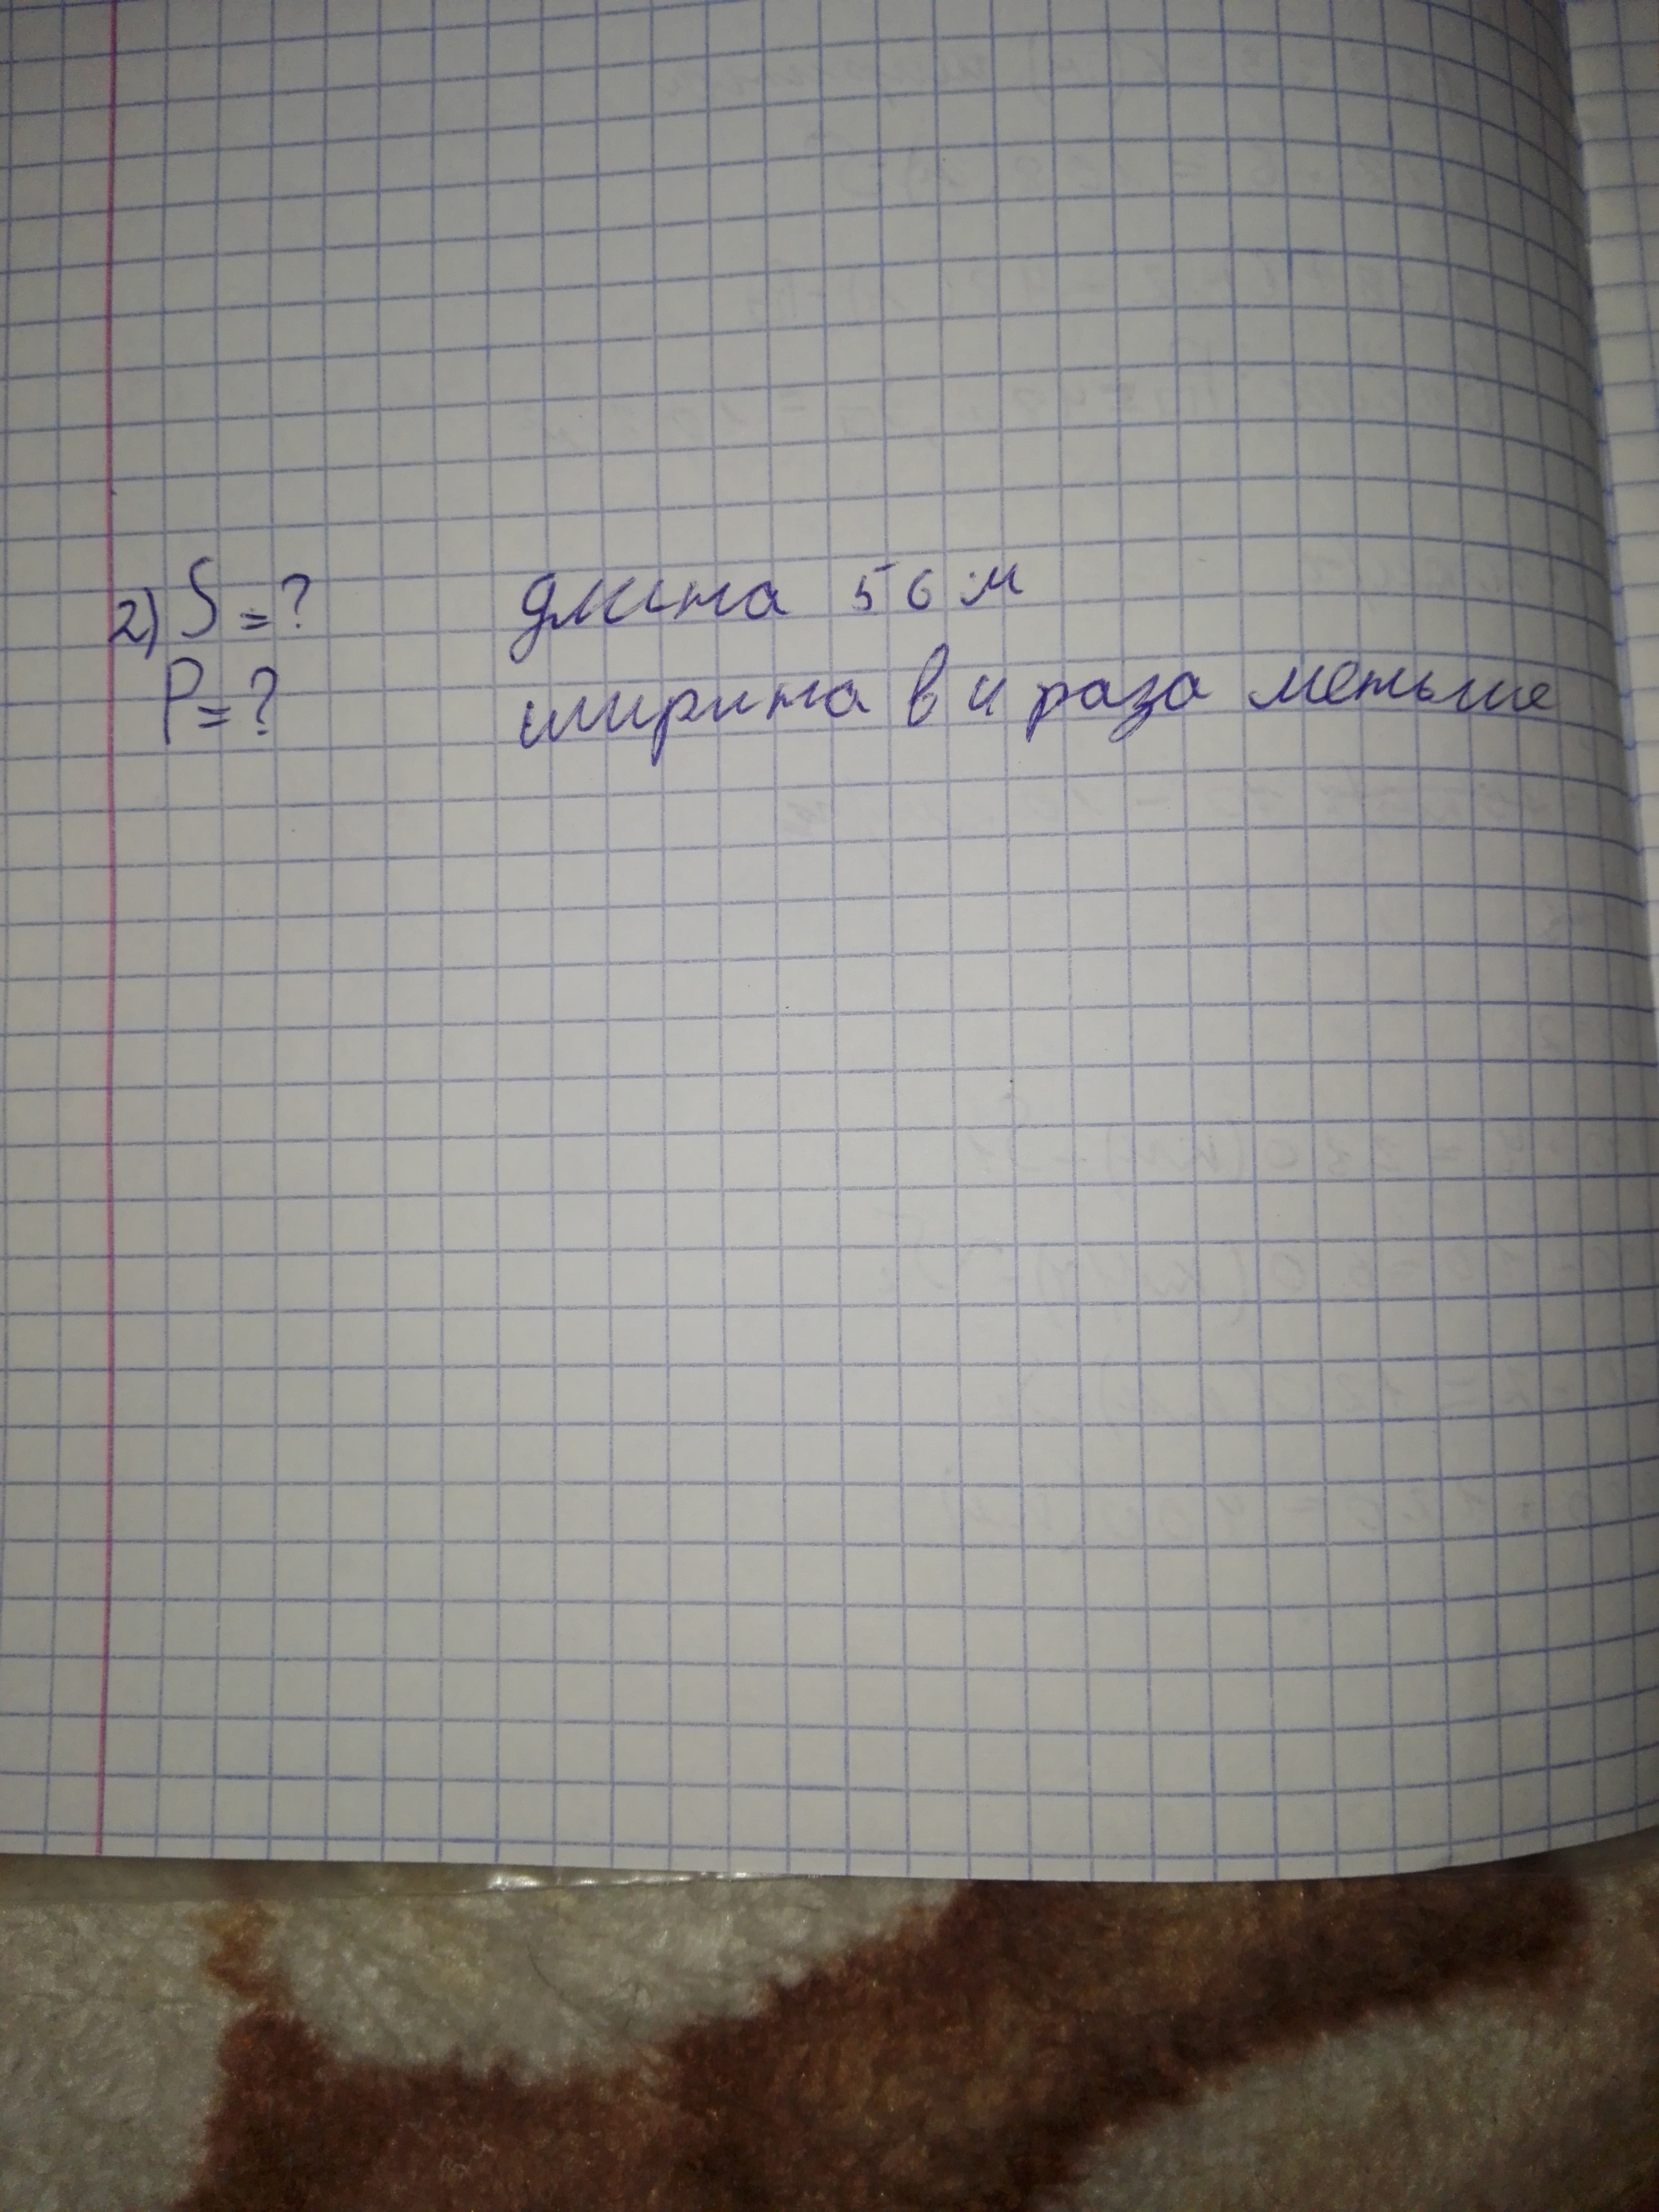 2) S = ? длина 56 м
P = ? ширина в 4 раза меньше